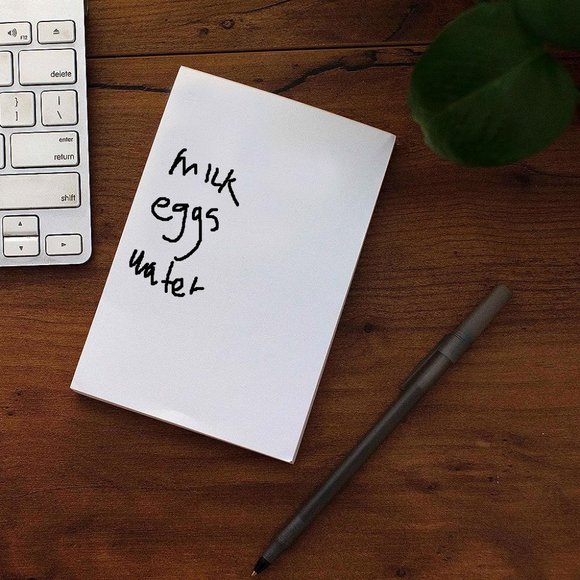 F12
delete
}
]
|
\
enter
return
shift
milk
eggs
water